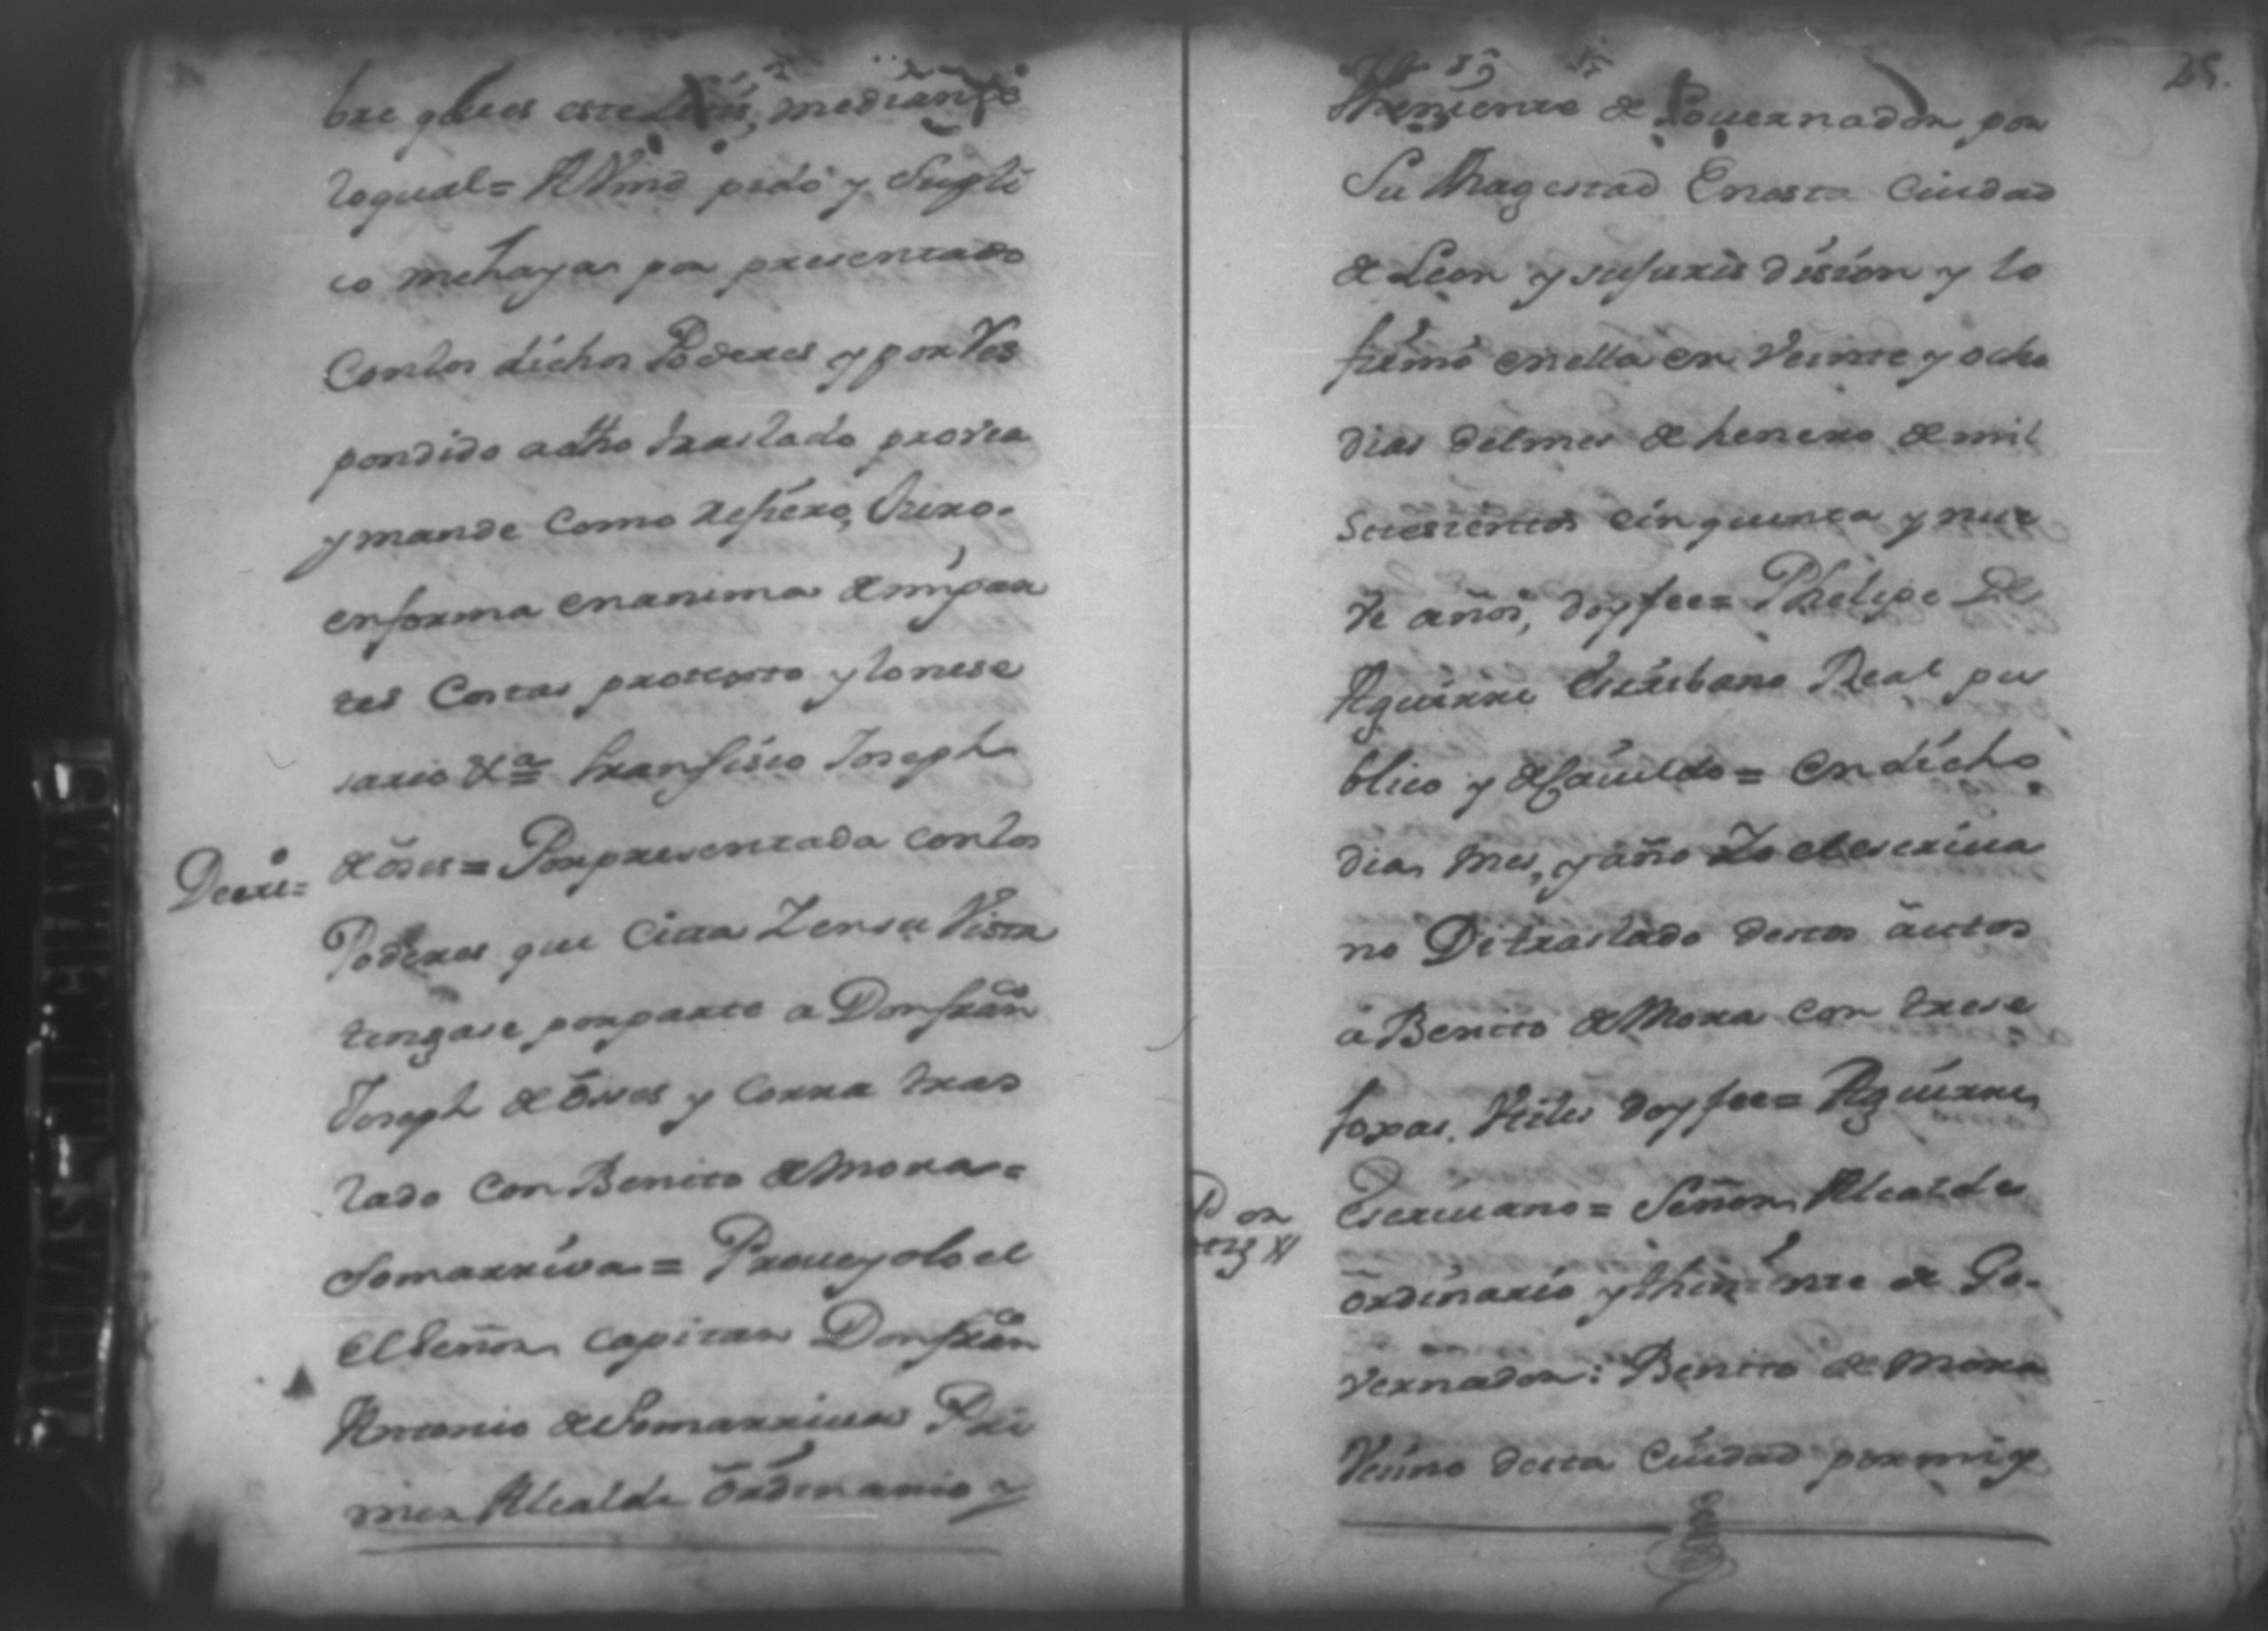 bre que es este mediante
loqual= A Vmd pido y Supli
co mehayar por presentado
Conlos dichos Poderes y por Res
pondido adho traslado provea
y mande Como refiero, Juro.
enforma enanima demipar
tes Costas protexto ylonese
sario &a= Fransisco Joseph
Decreo= de óses= Porpresentada conlos
Poderes que Cita Zensu Vista
tengase porparte a Donfranco
Joseph de óses y Corra tras
lado Con Benito deMora=
Somarriva= Proueyolo el
elSeñor Capitan Donfranco
Antonio deSomarriua Pri
mer Alcalde ordinario y
25.
theniente de Gouernador por
Su Magestad Enesta Ciudad
de Leon y sujurisdision y lo
firmó enella en Veinte y ocho
dias delmes de henero de mil
setesientos cinquenta y nue
ve años, doyfee= Phelipe De
Aguirre Escribano Real pu
blico y deCauildo= Endicho
dia, Mes, y año Yo elescriua
no Di traslado destos autos
a Benito deMora con trese
foxas Vtiles doyfee= Aguirre,
Escriuano= Señor Alcalde
ordinario ytheniente de Go-
vernador: Benito de Mora
Vesino desta Ciudad pormiy